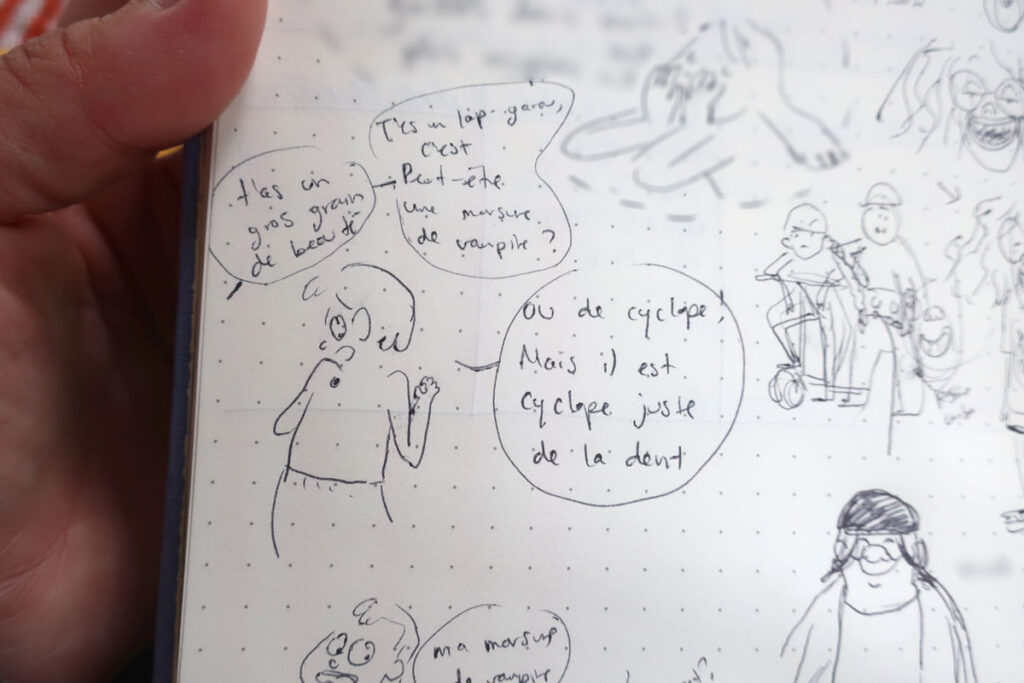 t'as un
gros grain
de beauté
T'es un lap-garou,
c'est
Peut-être
une morsure
de vampire ?
ou de cyclope,
Mais il est
cyclope juste
de la dent
ma morsure
de vampire